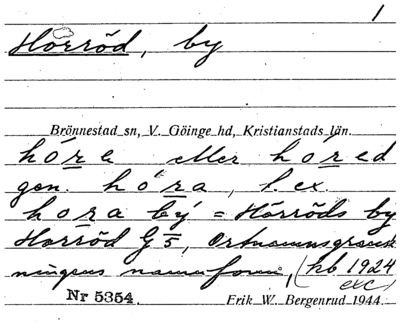 1
Horröd, by
Brönnestad sn, V. Göinge hd, Kristianstads län.
hóra eller hóred
gen. hóra, t.ex.
hora bý = Hörröds by
Horröd G 5, Ortnamnsgransk
ningens namnform, (hb 1924
exc)
Nr 5354. Erik W. Bergenrud 1944.